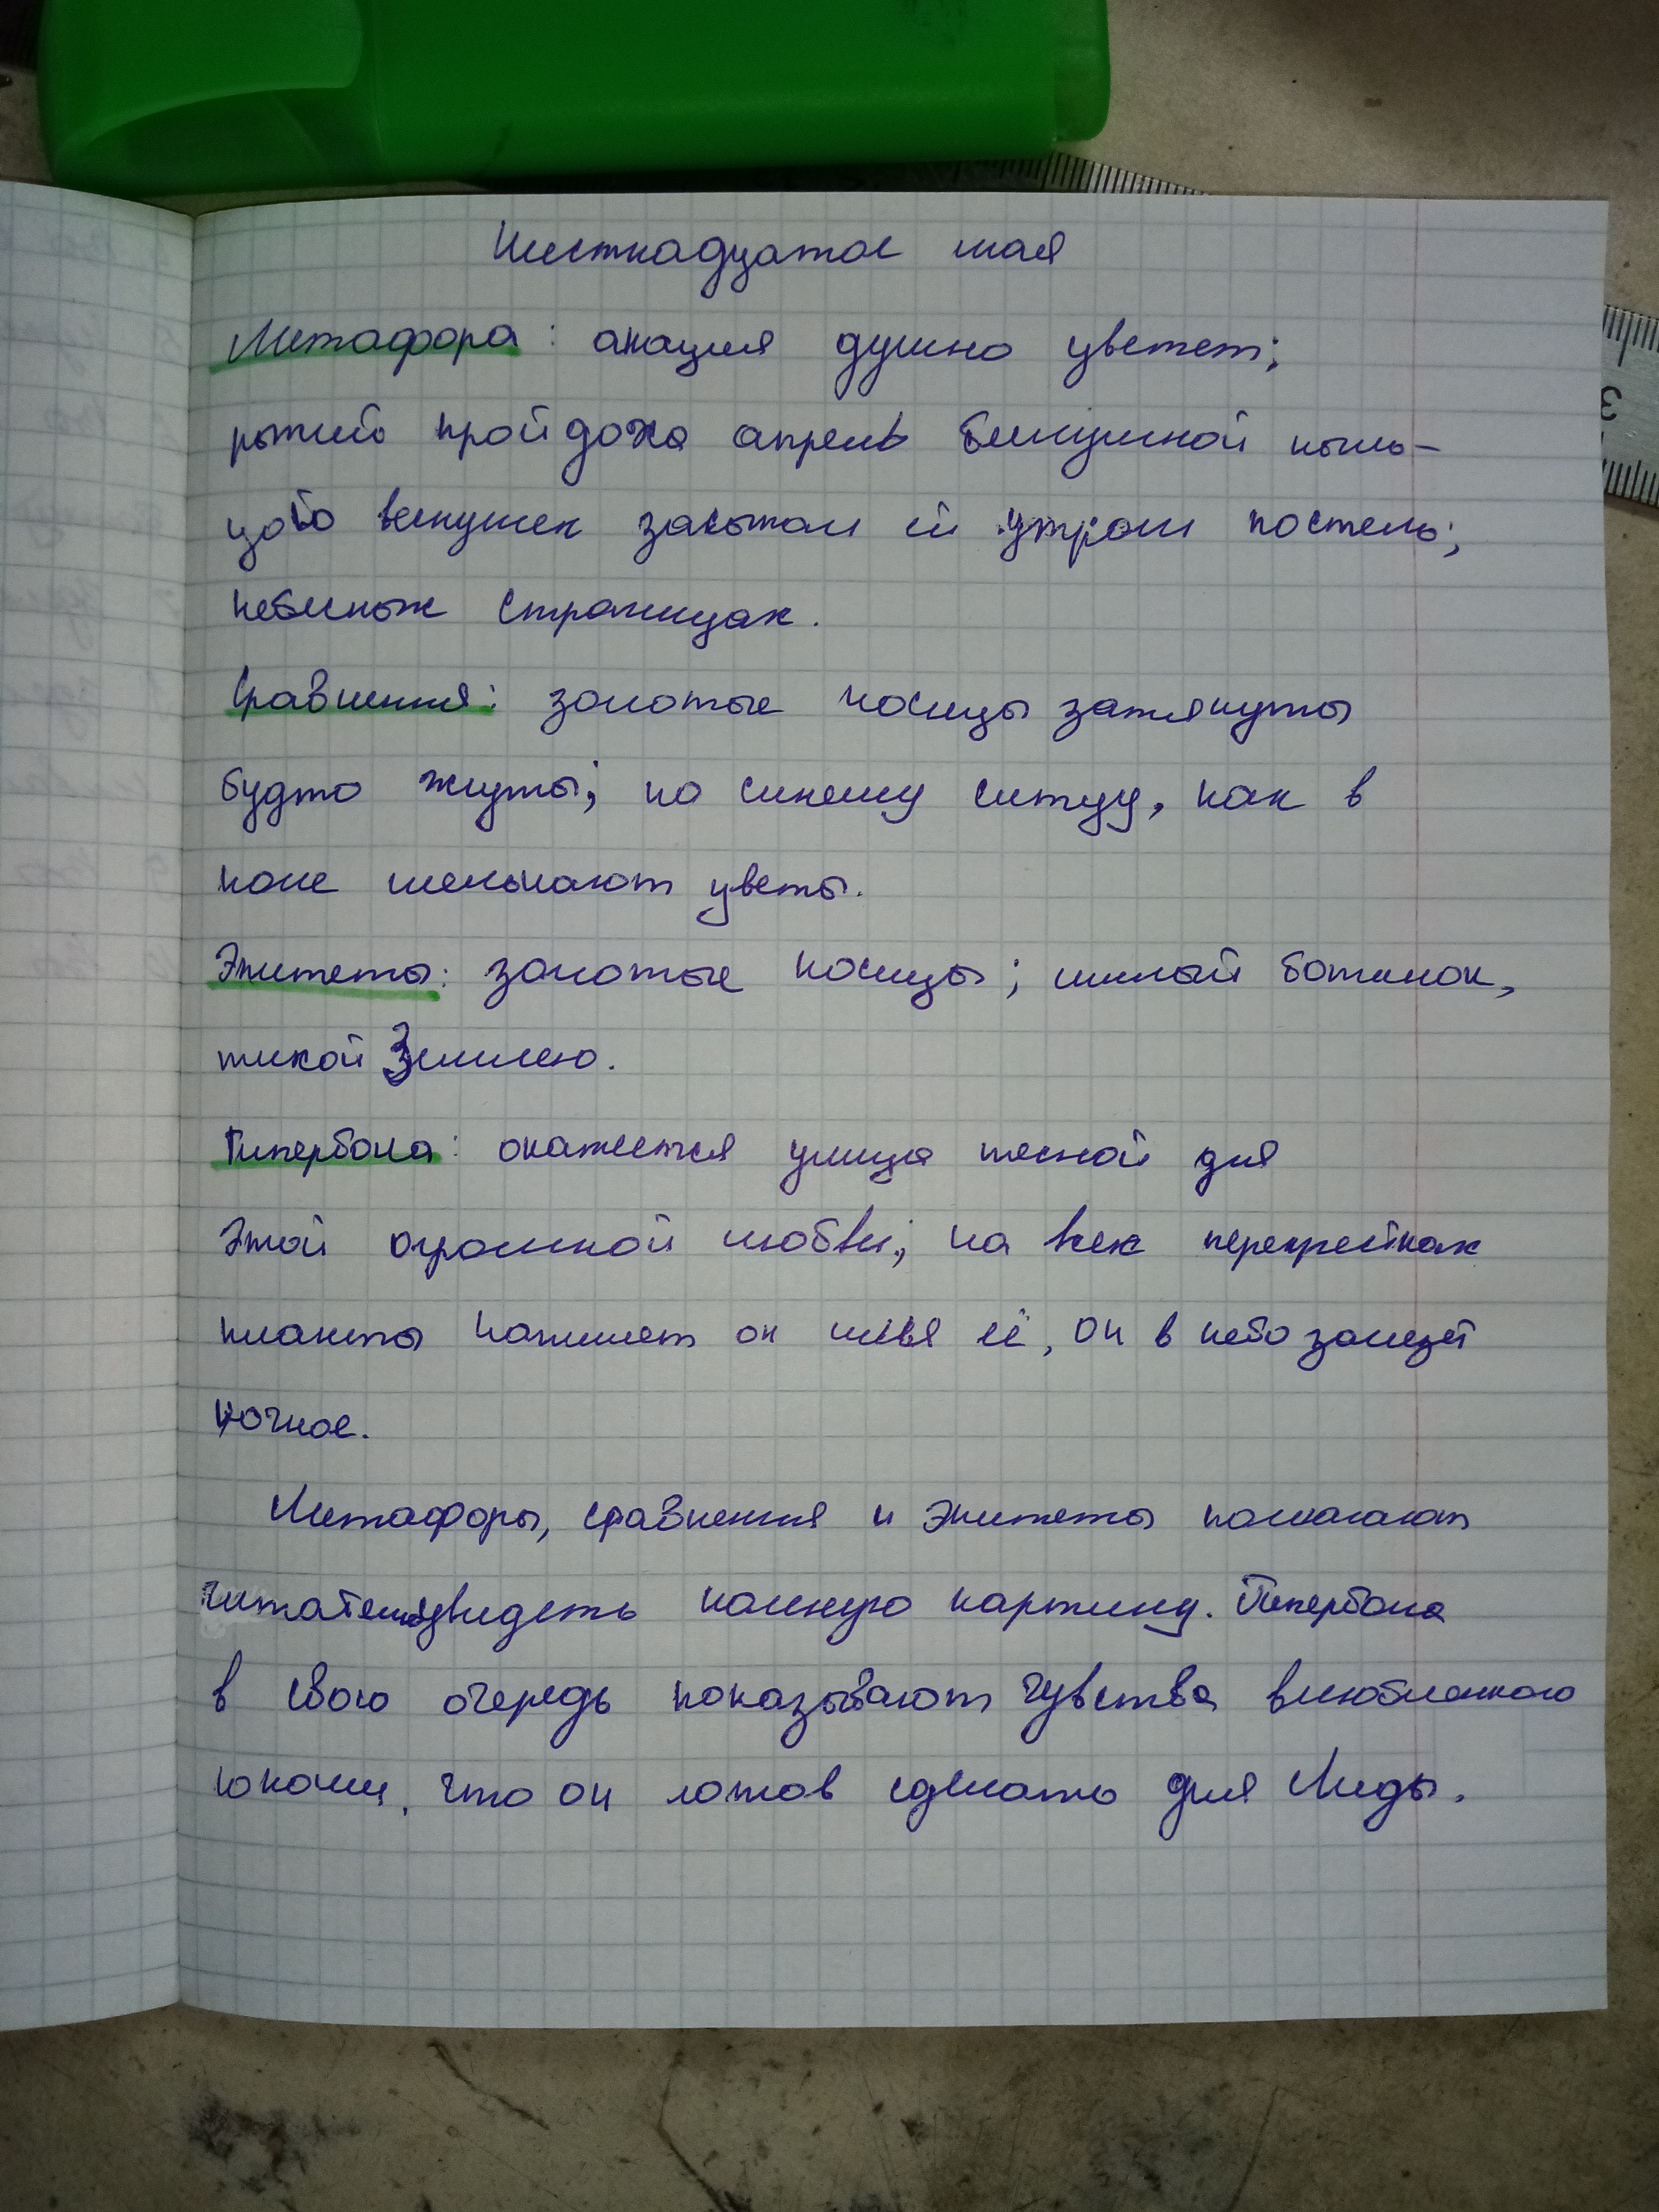 Шестнадцатое мая
Метафора: акация душно цветет;
рыжий пройдоха апрель бесшумной пыль-
цою веснушек засыпал ей утром постель;
небесных страницах.
Сравнения: золотые косицы затянуты
будто жгуты; по синему ситцу, как в
поле мелькают цветы.
Эпитеты: золотые косицы; милый ботинок,
тихой Землею.
Гипербола: окажется улица тесной для
этой огромной любви; на всех перекрестках
планеты напишет он имя её, он в небо залезет
ночное.
Метафоры, сравнения и эпитеты помогают
читателю увидеть полную картину. Гипербола
в свою очередь показывают чувства влюбленного
юноши, что он готов сделать для Лиды.